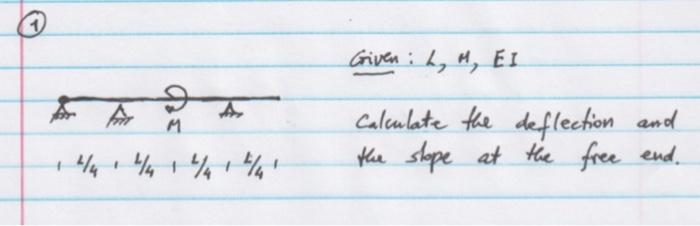 1
Given: L, M, EI
Calculate the deflection and
the slope at the free end.
M
L/4 L/4 L/4 L/4